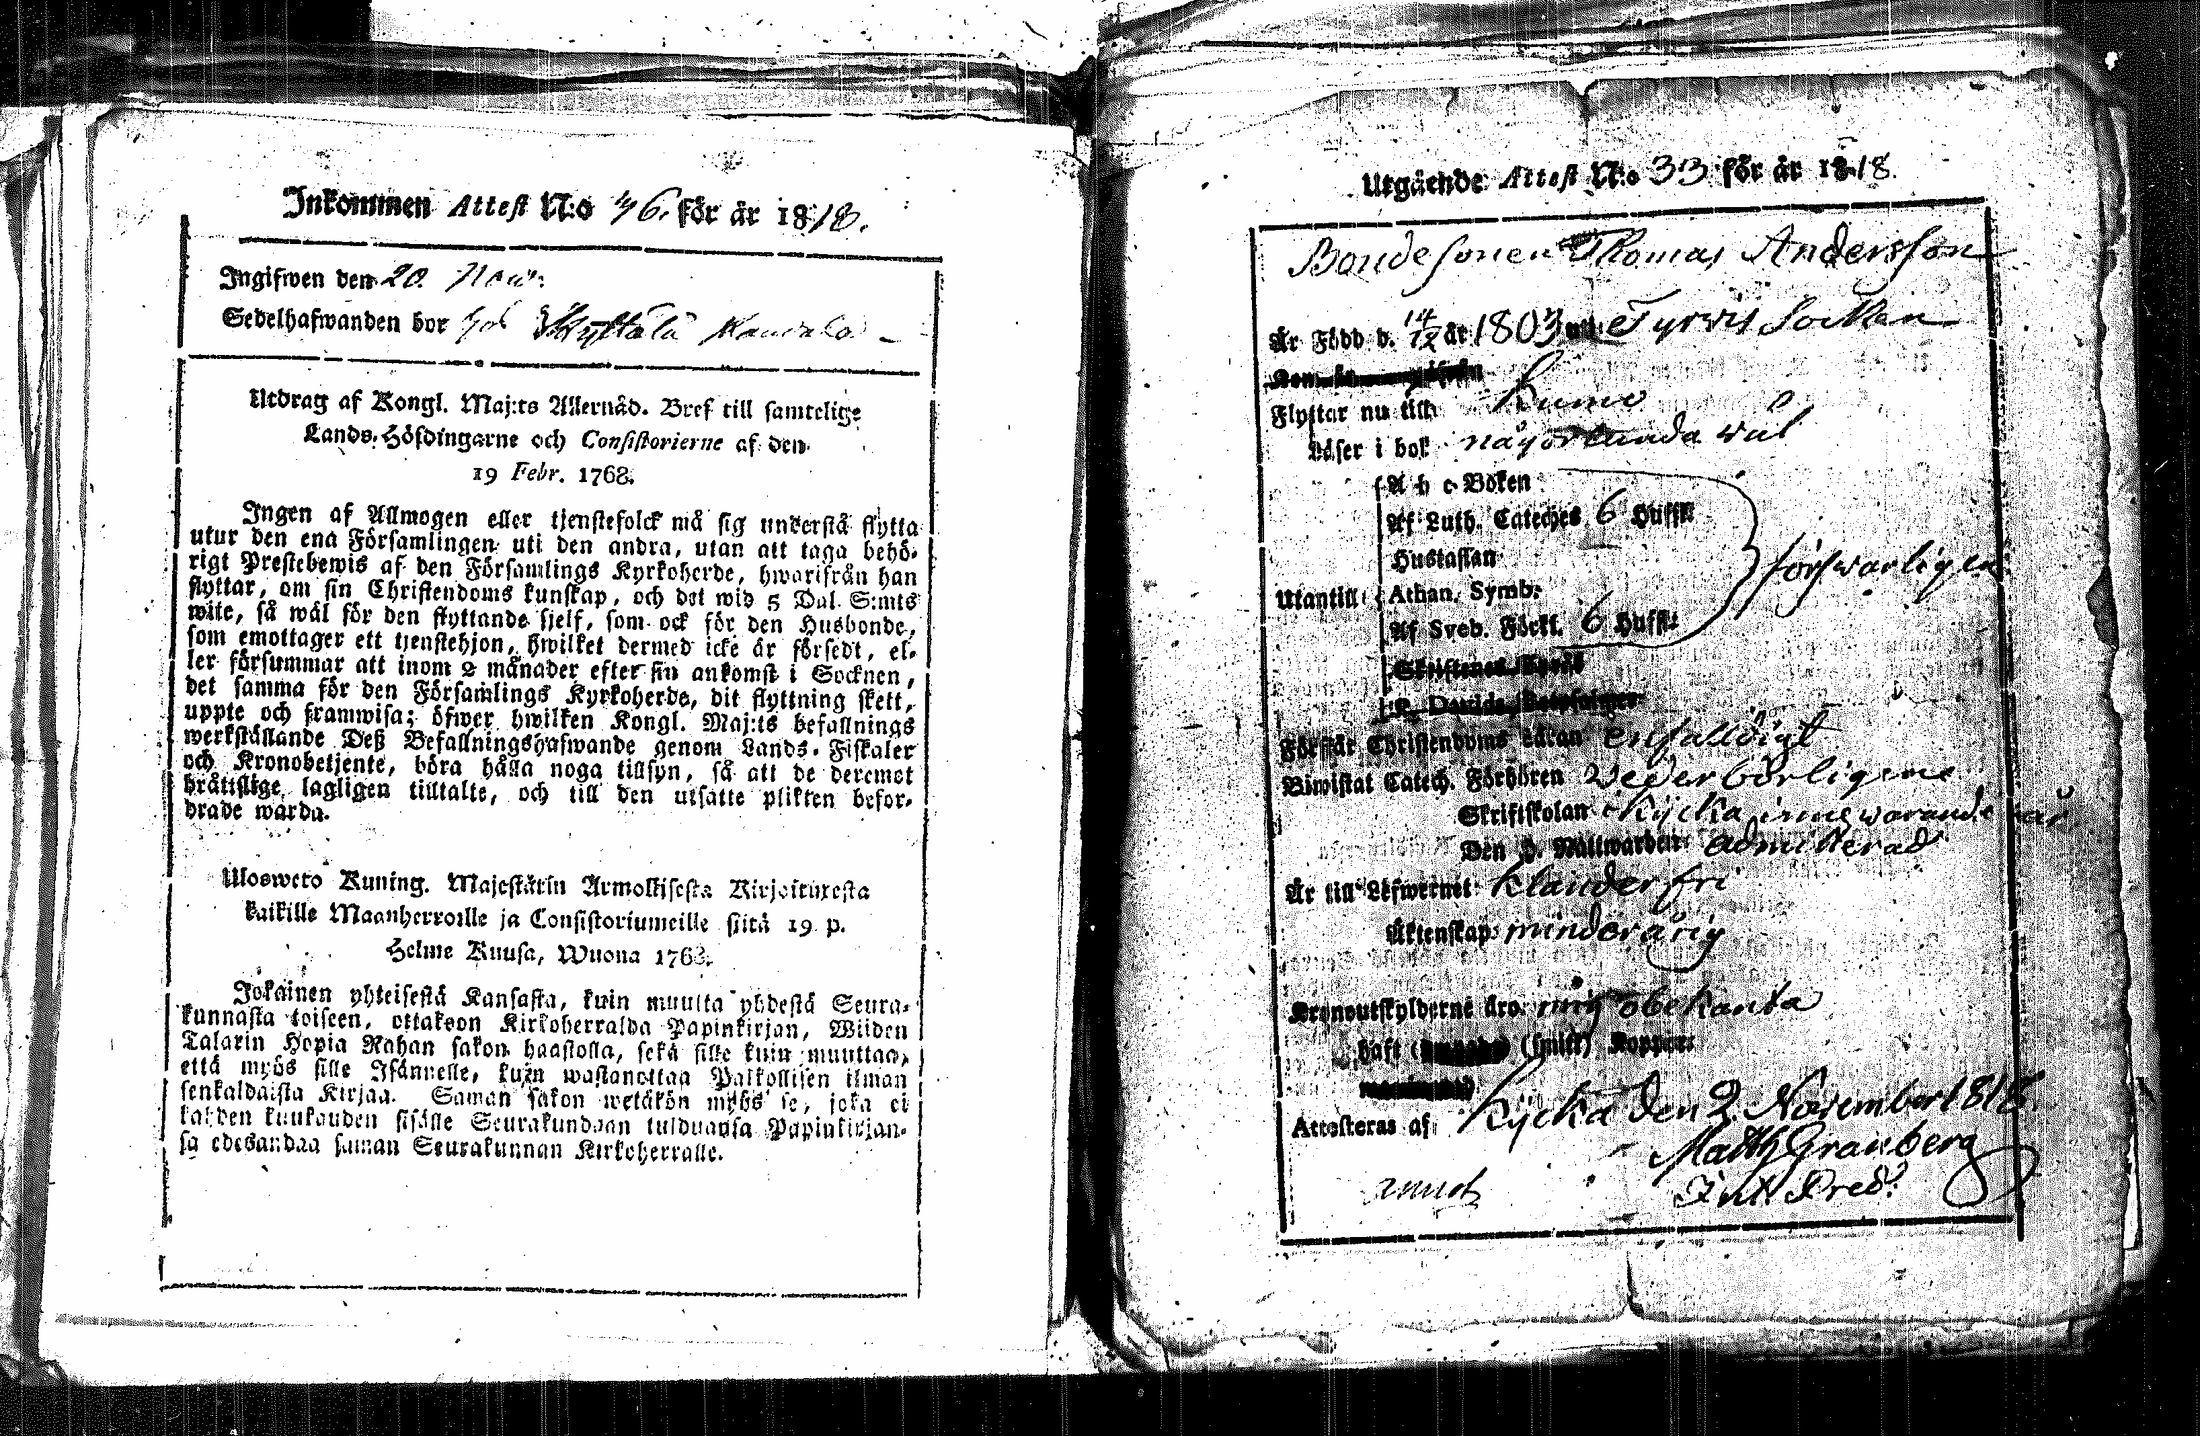 Inkommen Attest N:o 46. för år 1818.
Ingifwen den 20. Nov:
Sedelhafwanden bor hos Skyttälä
Utdrag af Kongl. Maj:ts Allernåd. Bref till samtelige
Lands-Höfdingarne och Consistorierne af den
19 Febr. 1768.
Ingen af Allmogen eller tjenstefolck må sig understå flytta
utur den ena Församlingen uti den andra, utan att taga behö-
rigt Prestebewis af den Församlings Kyrkoherde, hwarifrån han
flyttar, om sin Christendoms kunskap, och det wid 5 Dal. S:mts
wite, så wäl för den flyttande sjelf, som ock för den Husbonde,
som emottager ett tjenstehjon, hwilket dermed icke är försedt, el-
ler försummar att inom 2 månader efter sin ankomst i Socknen,
det samma för den Församlings Kyrkoherde, dit flyttning skett,
uppte och framwisa; öfwer hwilken Kongl. Maj:ts befallnings
werkställande Deß Befallningshafwande genom Lands-Fiskaler
och Kronobetjente, böra hålla noga tillsyn, så att de deremot
bråttslige lagligen tilltalte, och till den utsatte plikten befor-
drade warda.
Ulosweto Kuning. Majestärin Armollisesta Kirjoituxesta
kaikille Maanherroille ja Consistoriumeille siitä 19 p.
Helme Kuusa, Wuona 1768.
Jokainen yhteisestä Kansasta, kuin muutta yhdestä Seura-
kunnasta toiseen, ottakoon Kirkoherralda Papinkirjan, Wiiden
Talarin Hopia Rahan sakon haastolla, sekä sille kuin muuttaa,
että myös sille Isännelle, kuin wastanottaa Palkollisen ilman
senkaldaista Kirjaa. Saman sakon wetäkön myös se, joka ei
kahden kuukauden sisälle Seurakundaan tulduansa Papinkirjan-
sa edesandaa saman Seurakunnan Kirkoherralle.
Utgående Attest N:o 33 för år 1818.
Bondesonen Thomas Andersson
Är Född d. 14/12 år 1803 uti Tyrvis Sockn
Flyttar nu till Kumo
Läser i bok någorlunda väl
A b c Boken
Af Luth. Cateches 6 Hufst:
Hustaflan
försvarligen
Utantill Athan. Symb.
Af Sveb. Förkl. 6 Hufst:
Förstår Christendoms Läran enfalldigt
Biwistat Catech. Förhören vederbörligene
Skriftskolan i Kjcka innevarande år
Den H. Nattwarden admitterad
Är till Lefwernet klanderfri
Äktenskap minderårig
Kronoutskylderne äro mig obekanta
haft (smitt) Koppor
Attesteras af Kjcka den 2 November 1818
Matth Granberg